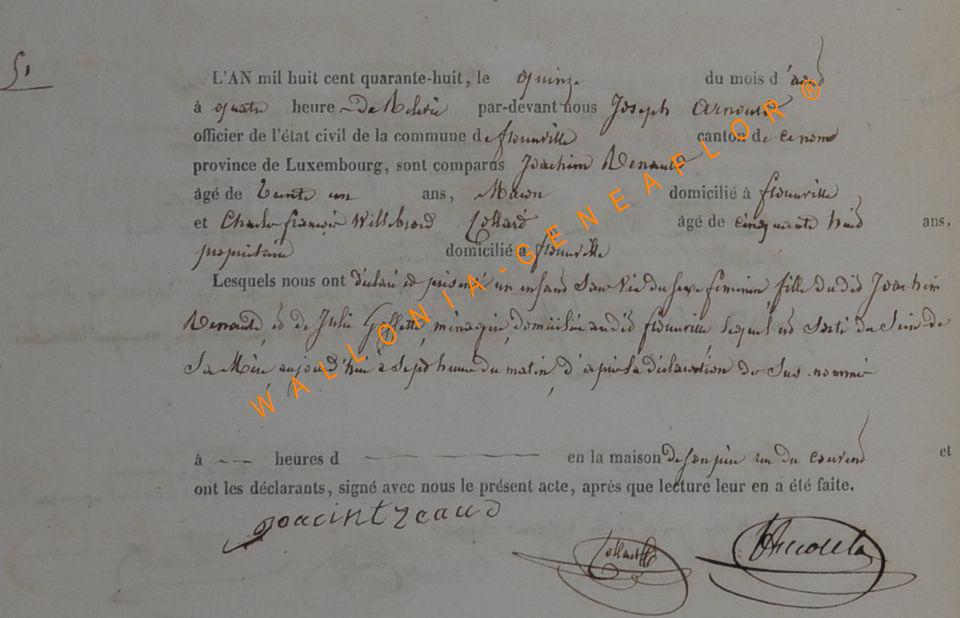 51
L'AN mil huit cent quarante-huit, le quinze du mois d'août
à quatre heure de Relevée par-devant nous Joseph Arnould
officier de l'état civil de la commune de florenville canton de ce nom
province de Luxembourg, sont comparus Joachim Renauld
âgé de trente un ans, Maçon domicilié à florenville
et Charles françois Willebrord Collard âgé de cinquante huit ans,
propriétaire domicilié à florenville
Lesquels nous ont déclaré et présenté un enfant sans vie du sexe féminin, fille dudit Joachim
Renauld, et de Julie ménagère, domiciliée audit florenville lequel est sorti du Sein de
Sa Mère aujourd'hui à sept heure du matin, d'après la déclaration des sus-nommés
à heures d en la maison de son père rue du couvent et
ont les déclarants, signé avec nous le présent acte, après que lecture leur en a été faite.
Collard
WALLONIA-GENEAFLOR®